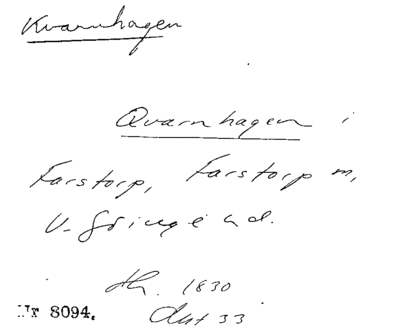 Kvarnhagen
Qvarnhagen i
Farstorp, Farstorp m,
V. Göinge hd.
1830
Akt 33
Nr 8094.